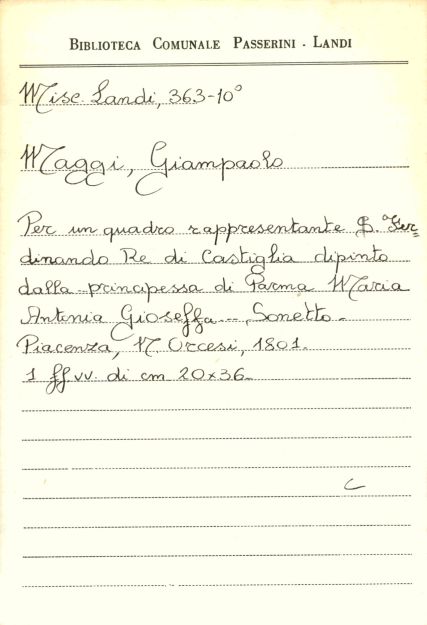 BIBLIOTECA COMUNALE PASSERINI - LANDI
Misc. Landi, 363-10°
Maggi, Giampaolo
Per un quadro rappresentante S. Fer=
dinando Re di Castiglia dipinto
dalla principessa di Parma Maria
Antonia Gioseffa... Sonetto.
Piacenza, N. Orcesi, 1801.
1 ff vv. di cm 20x36.
C